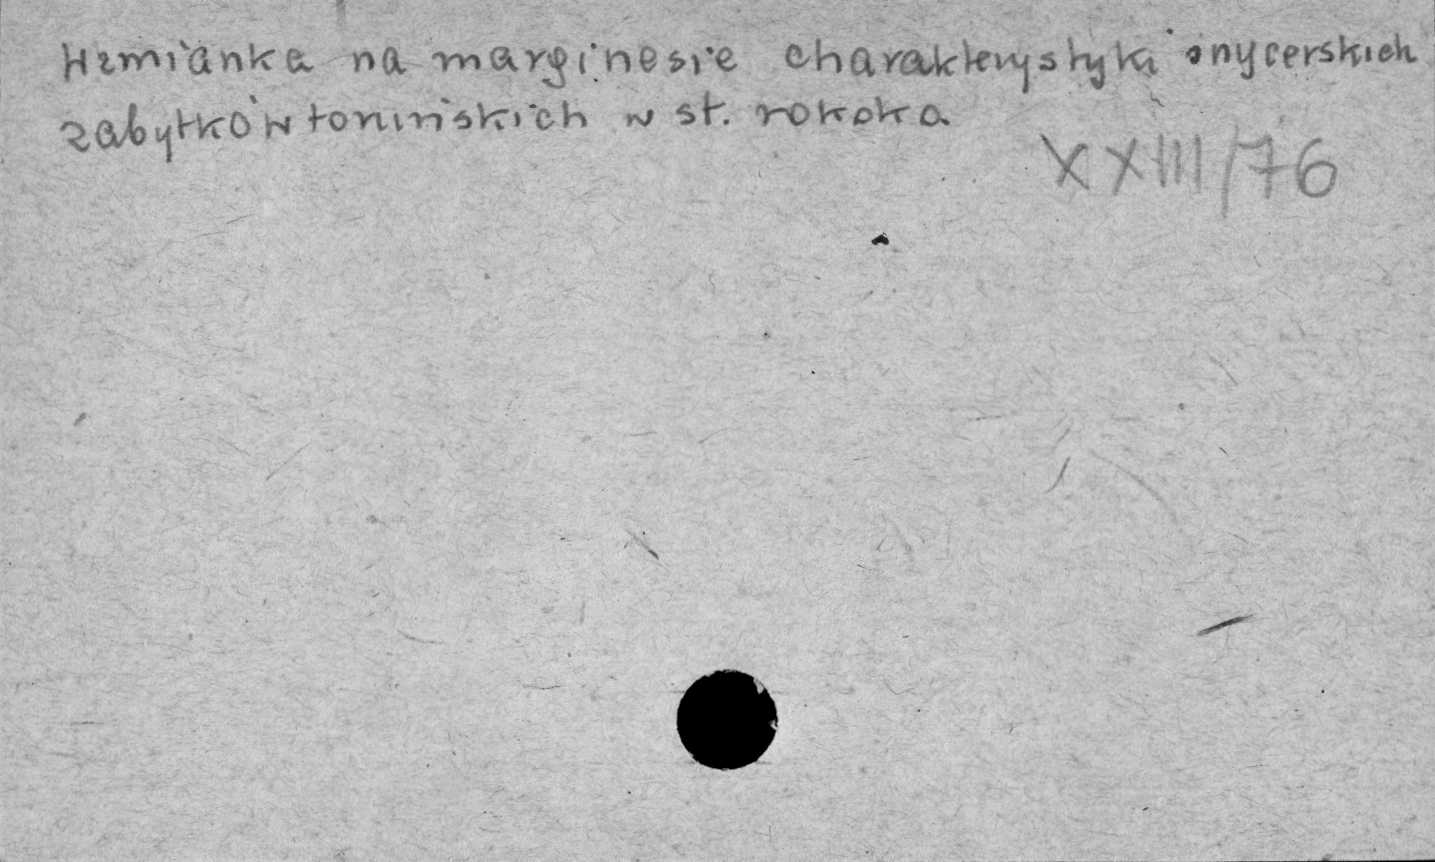 Wzmianka na marginesie charakterystyki snycerskich
zabytków toruńskich w st. rokoka.
XXIII/76